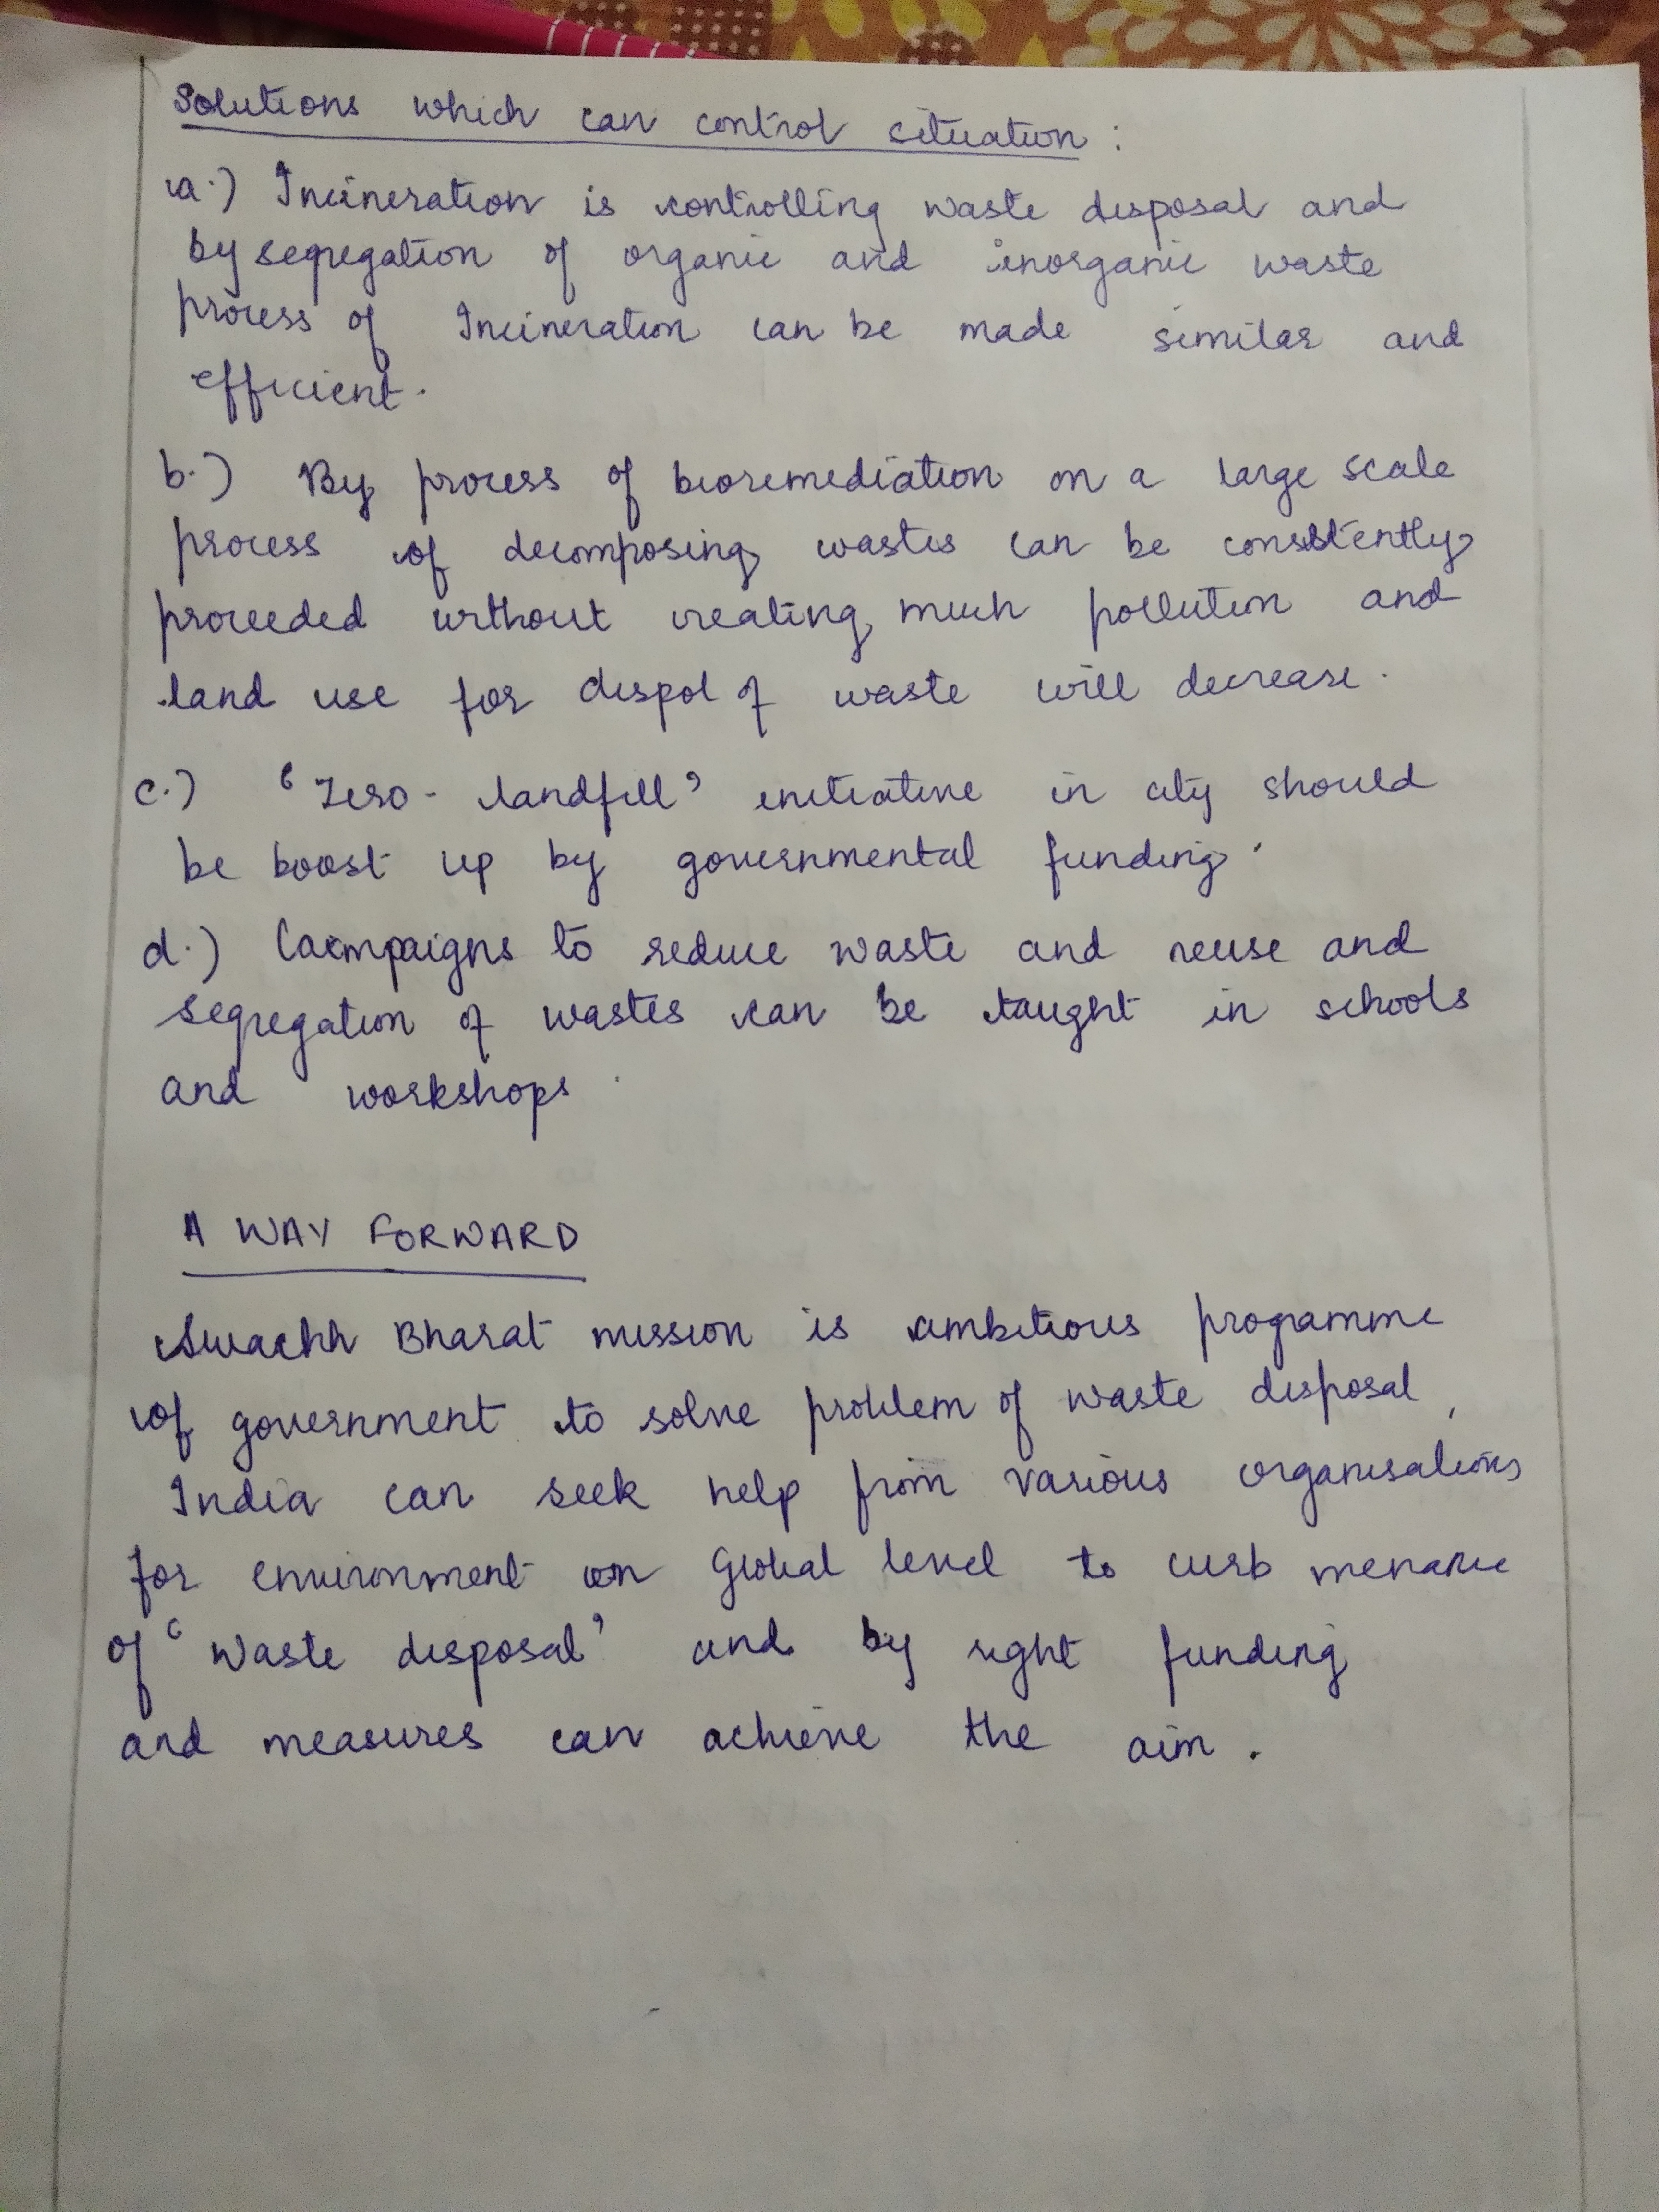 Solutions which can control situation :
a.) Incineration is controlling waste disposal and
by segregation of organic and inorganic waste
process of Incineration can be made similar and
efficient.
b.) By process of bioremediation on a large scale
process of decomposing wastes can be consistently
proceeded without creating much pollution and
land use for dispol of waste will decrease.
c.) 'Zero - landfill' initiative in city should
be boost up by governmental funding.
d.) Campaigns to reduce waste and reuse and
segregation of wastes can be taught in schools
and workshops.
A WAY FORWARD
Swachh Bharat mission is ambitious programme
of government to solve problem of waste disposal,
India can seek help from various organisations
for environment on Global level to curb menace
of 'Waste disposal' and by right funding
and measures can achieve the aim.